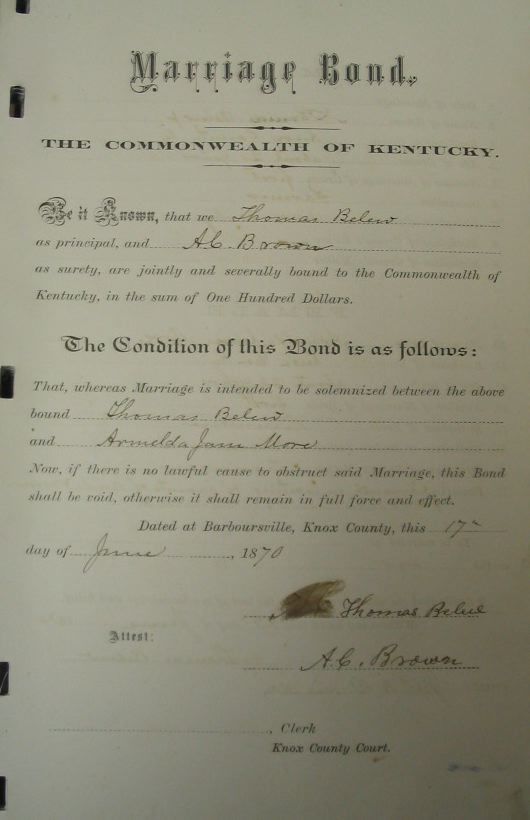 Marriage Bond.
THE COMMONWEALTH OF KENTUCKY.
Be it Known, that we Thomas Belew
as principal, and A.C. Brown
as surety, are jointly and severally bound to the Commonwealth of
Kentucky, in the sum of One Hundred Dollars.
The Condition of this Bond is as follows:
That, whereas Marriage is intended to be solemnized between the above
bound Thomas Belew
and Armelda Jane More
Now, if there is no lawful cause to obstruct said Marriage, this Bond
shall be void, otherwise it shall remain in full force and effect.
Dated at Barboursville, Knox County, this 17
day of June, 1870
Thomas Belew
Attest:
A.C. Brown
, Clerk
Knox County Court.